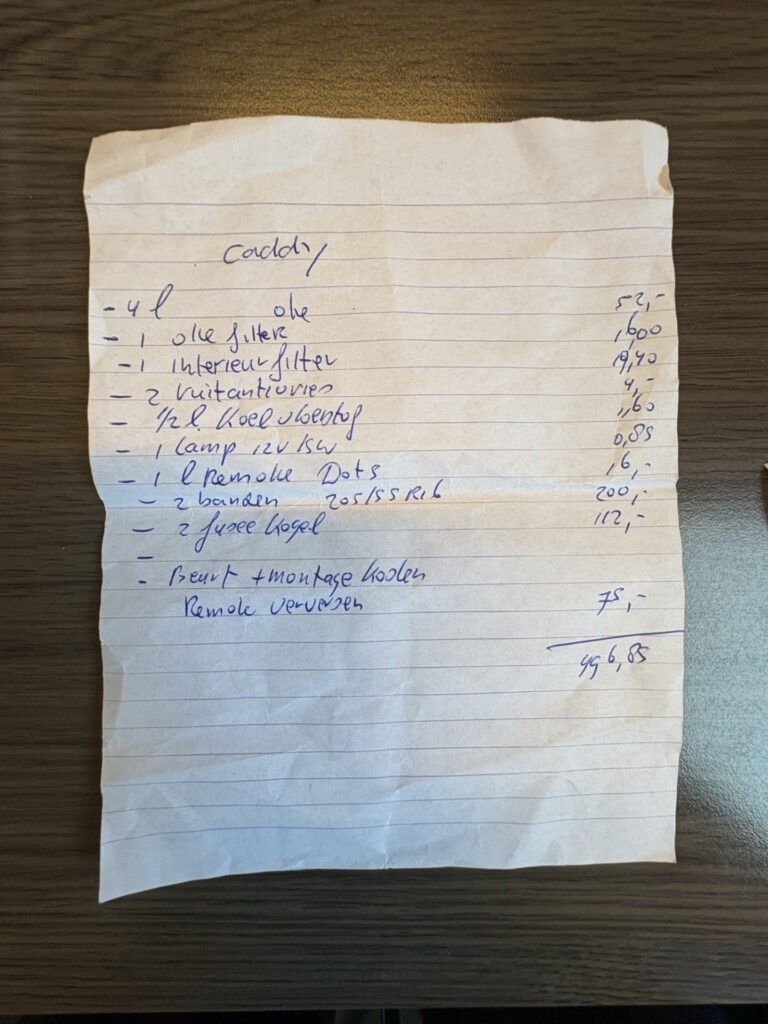 Caddy
- 4 l olie 52,-
- 1 olie filter 16,00
- 1 interieurfilter 19,40
- 2 ruitantiovries 4,-
- 1/2 l. Koelvloeistof 1,60
- 1 lamp 12V 15W 0,85
- 1 l Remolie Dot 5 16,-
- 2 banden 205/55 R16 200,-
- 2 fusee kogel 112,-
-
- Beurt + montage kosten
Remolie verversen 75,-
496,85